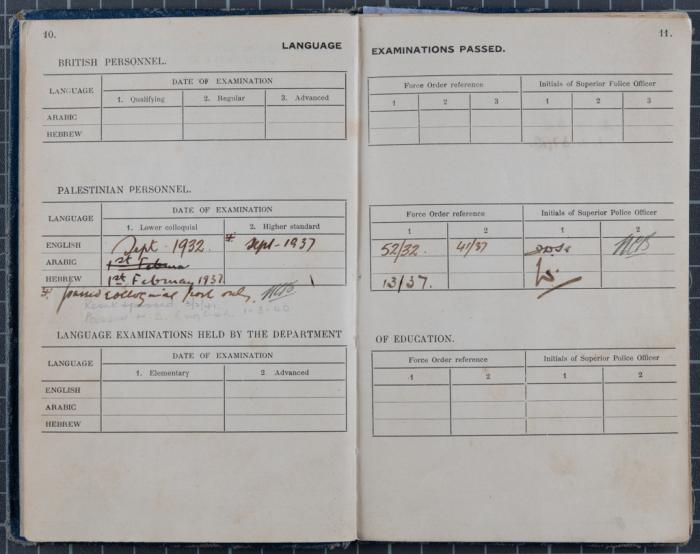 10.
LANGUAGE
BRITISH PERSONNEL.
LANGUAGE
DATE OF EXAMINATION
1. Qualifying 2. Regular 3. Advanced
ARABIC
HEBREW
PALESTINIAN PERSONNEL.
LANGUAGE
DATE OF EXAMINATION
1. Lower colloquial 2. Higher standard
ENGLISH Sept. 1932. Sept-1937
ARABIC 1st Februa
HEBREW 1st February 1937.
passed colloquial part only.
LANGUAGE EXAMINATIONS HELD BY THE DEPARTMENT
LANGUAGE
DATE OF EXAMINATION
1. Elementary 2. Advanced
ENGLISH
ARABIC
HEBREW
11.
EXAMINATIONS PASSED.
Force Order reference Initials of Superior Police Officer
1 2 3 1 2 3
Force Order reference Initials of Superior Police Officer
1 2 1 2
52/32. 41/37
13/37.
OF EDUCATION.
Force Order reference Initials of Superior Police Officer
1 2 1 2